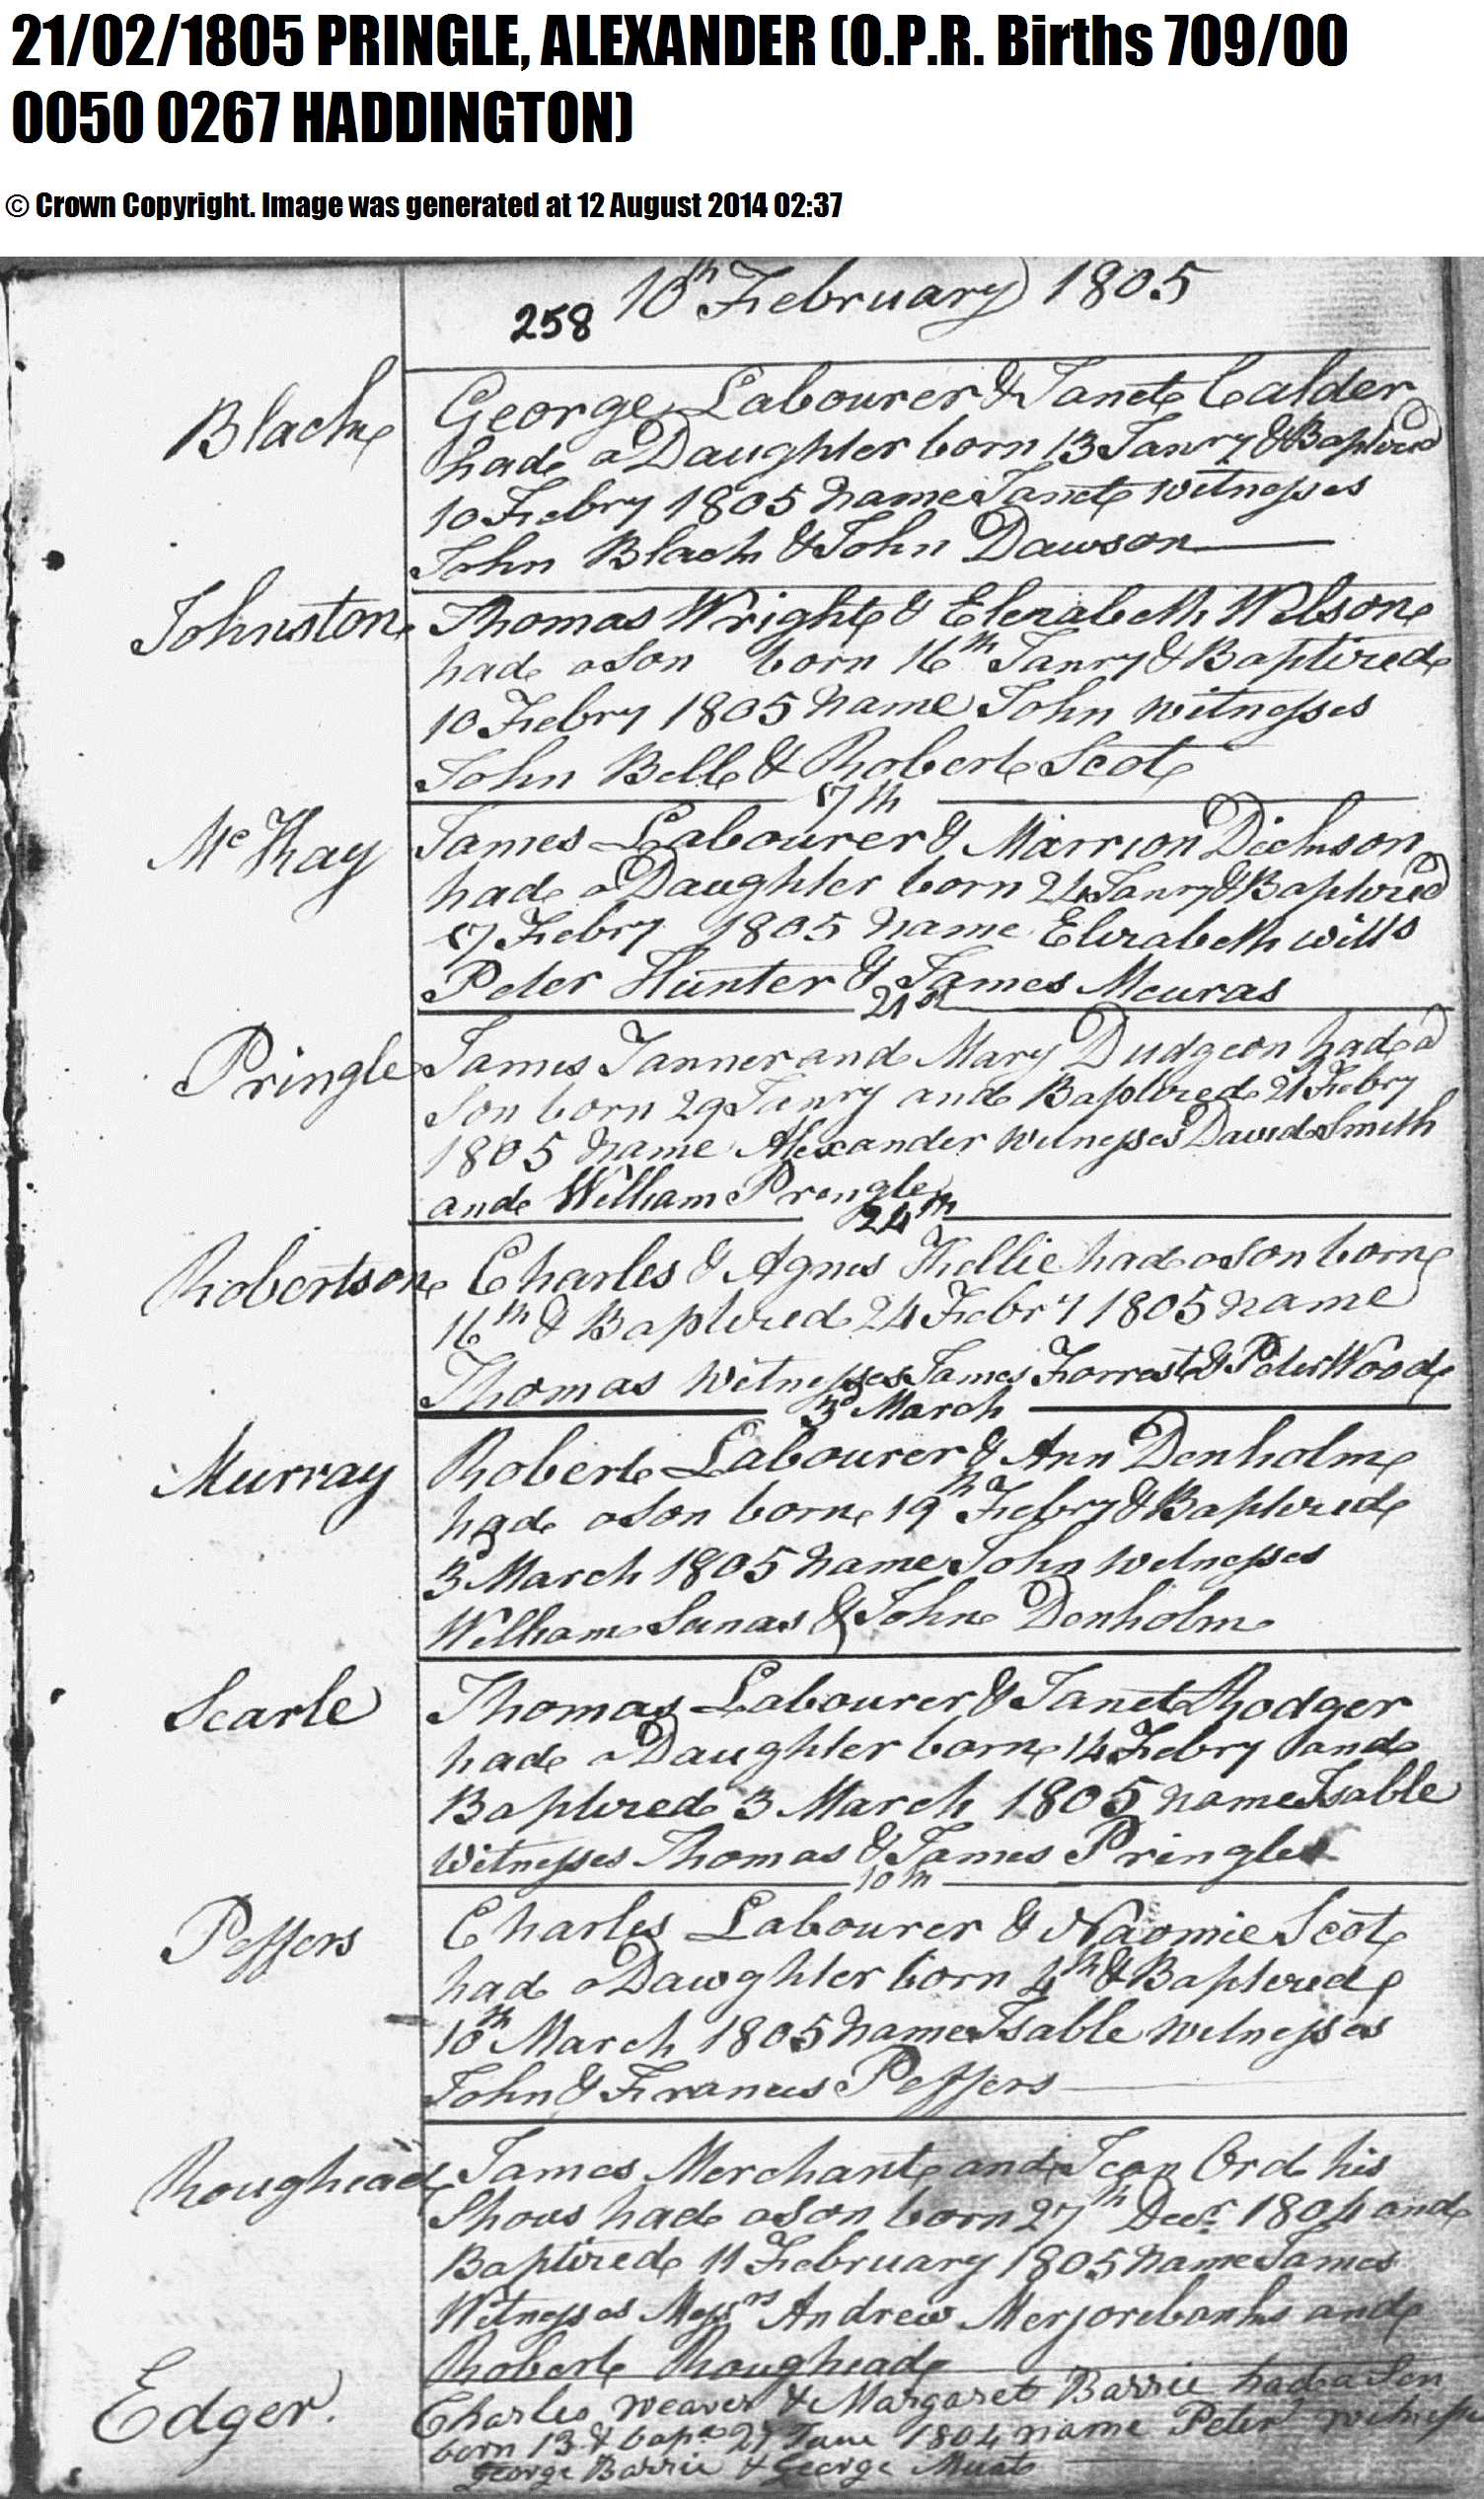 21/02/1805 PRINGLE, ALEXANDER (O.P.R. Births 709/00
0050 0267 HADDINGTON)
© Crown Copyright. Image was generated at 12 August 2014 02:37
258 10th February 1805
Black George Labourer & Janet Calder
had a Daughter born 13 Janry & Baptized
10 Febry 1805 name Janet witnesses
John Black & John Dawson
Johnston Thomas Wright & Elezabeth Wilson
had a Son born 16th Janry & Baptized
10 Febry 1805 name John witnesses
John Bell & Robert Scot
17th
McKay James Labourer & Marrion Dickson
had a Daughter born 24 Janry & Baptized
17 Febry 1805 name Elizabeth witts
Peter Hunter & James Meuras
21st
Pringle James Tanner and Mary Dudgeon had a
Son born 29 Janry and Baptized 21 Febry
1805 name Alexander witnesses David Smith
and William Pringle
24th
Robertson Charles & Agnes Kellie had a Son born
16th & Baptized 24 Febry 1805 name
Thomas witnesses James Forrest & Peter Wood
3d March
Murray Robert Labourer & Ann Denholm
had a Son born 19th Febry & Baptized
3d March 1805 name John witnesses
William & John Denholm
Searle Thomas Labourer & Janet Rodger
had a Daughter born 14 Febry and
Baptized 3 March 1805 name Isable
witnesses Thomas & James Pringle
10th
Peffers Charles Labourer & Naomie Scot
had a Dawghter born 4th & Baptized
10th March 1805 name Isable witnesses
John & Francis Peffers
Roughead James Merchant and Jean Ord his
Spous had a Son born 27th Decr 1804 and
Baptized 11 February 1805 name James
Witnesses Messrs Andrew Merjoribanks and
Robert Roughead
Edger. Charles weaver & Margaret Barrie had a Son
born 13 & bapd 27 June 1804 name Peter witnesses
George Barrie & George Muat